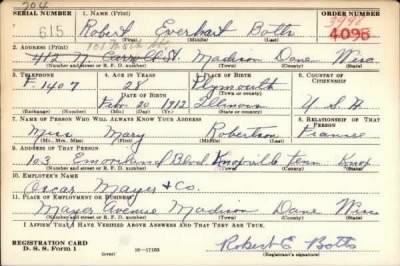 704
SERIAL NUMBER 1. NAME (Print) ORDER NUMBER
615 Robert Everhart Botts 3998
4098
(First) (Middle) (Last)
2. ADDRESS (Print)
412 N. Carroll St. Madison Dane Wisc.
(Number and street or R. F. D. number) (Town) (County) (State)
3. TELEPHONE 4. AGE IN YEARS 5. PLACE OF BIRTH 6. COUNTRY OF CITIZENSHIP
F. 1407 28 Plymouth
DATE OF BIRTH (Town or county)
Feb. 20 1912 Illinois U S A
(Exchange) (Number) (Mo.) (Day) (Yr.) (State or country)
7. NAME OF PERSON WHO WILL ALWAYS KNOW YOUR ADDRESS 8. RELATIONSHIP OF THAT PERSON
Miss Mary Robertson Fiancee
(Mr., Mrs., Miss) (First) (Middle) (Last)
9. ADDRESS OF THAT PERSON
103 Blvd. Knoxville Tenn Knox
(Number and street or R. F. D. number) (Town) (County) (State)
10. EMPLOYER'S NAME
Oscar Mayer & Co.
11. PLACE OF EMPLOYMENT OR BUSINESS
Mayer Avenue Madison Dane Wisc
(Number and street or R. F. D. number) (Town) (County) (State)
I AFFIRM THAT I HAVE VERIFIED ABOVE ANSWERS AND THAT THEY ARE TRUE.
REGISTRATION CARD
D. S. S. Form 1 (over) 16—17105 Robert E Botts
(Registrant's signature)